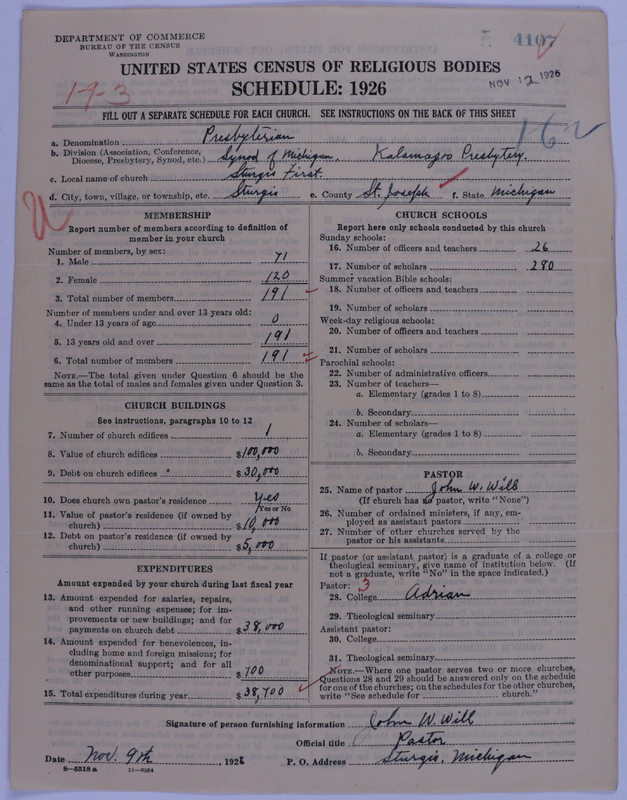 DEPARTMENT OF COMMERCE
BUREAU OF THE CENSUS
WASHINGTON
4107
UNITED STATES CENSUS OF RELIGIOUS BODIES
SCHEDULE: 1926
NOV 12 1926
1-9-3
FILL OUT A SEPARATE SCHEDULE FOR EACH CHURCH. SEE INSTRUCTIONS ON THE BACK OF THIS SHEET
162
a. Denomination Presbyterian
b. Division (Association, Conference, Diocese, Presbytery, Synod, etc.) Synod of Michigan, Kalamazoo Presbytery.
c. Local name of church Sturgis First.
d. City, town, village, or township, etc. Sturgis e. County St. Joseph f. State Michigan
MEMBERSHIP
Report number of members according to definition of
member in your church
Number of members, by sex:
1. Male 71
2. Female 120
3. Total number of members 191
Number of members under and over 13 years old:
4. Under 13 years of age 0
5. 13 years old and over 191
6. Total number of members 191
NOTE.—The total given under Question 6 should be the
same as the total of males and females given under Question 3.
CHURCH BUILDINGS
See instructions, paragraphs 10 to 12
7. Number of church edifices 1
8. Value of church edifices $100,000
9. Debt on church edifices $30,000
10. Does church own pastor's residence Yes
Yes or No
11. Value of pastor's residence (if owned by
church) $10,000
12. Debt on pastor's residence (if owned by
church) $5,000
EXPENDITURES
Amount expended by your church during last fiscal year
13. Amount expended for salaries, repairs,
and other running expenses; for im-
provements or new buildings; and for
payments on church debt $38,000
14. Amount expended for benevolences, in-
cluding home and foreign missions; for
denominational support; and for all
other purposes $700
15. Total expenditures during year $38,700
CHURCH SCHOOLS
Report here only schools conducted by this church
Sunday schools:
16. Number of officers and teachers 26
17. Number of scholars 280
Summer vacation Bible schools:
18. Number of officers and teachers
19. Number of scholars
Week-day religious schools:
20. Number of officers and teachers
21. Number of scholars
Parochial schools:
22. Number of administrative officers
23. Number of teachers—
a. Elementary (grades 1 to 8)
b. Secondary
24. Number of scholars—
a. Elementary (grades 1 to 8)
b. Secondary
PASTOR
25. Name of pastor John W. Will
(If church has no pastor, write "None")
26. Number of ordained ministers, if any, em-
ployed as assistant pastors
27. Number of other churches served by the
pastor or his assistants
If pastor (or assistant pastor) is a graduate of a college or
theological seminary, give name of institution below. (If
not a graduate, write "No" in the space indicated.)
Pastor: 3
28. College Adrian
29. Theological seminary
Assistant pastor:
30. College
31. Theological seminary
NOTE.—Where one pastor serves two or more churches,
Questions 28 and 29 should be answered only on the schedule
for one of the churches; on the schedules for the other churches,
write "See schedule for church."
Signature of person furnishing information John W. Will
Official title Pastor
Date Nov. 9th, 1926 P. O. Address Sturgis, Michigan
8-5518a 11-9084